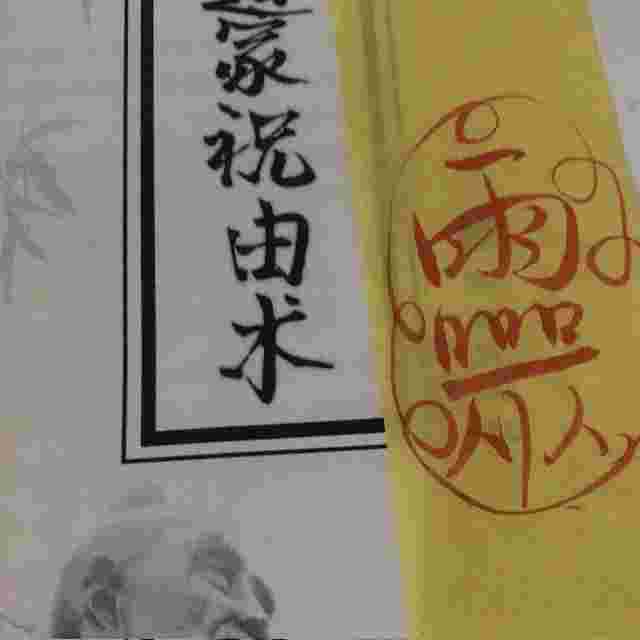 家祝由术
靈